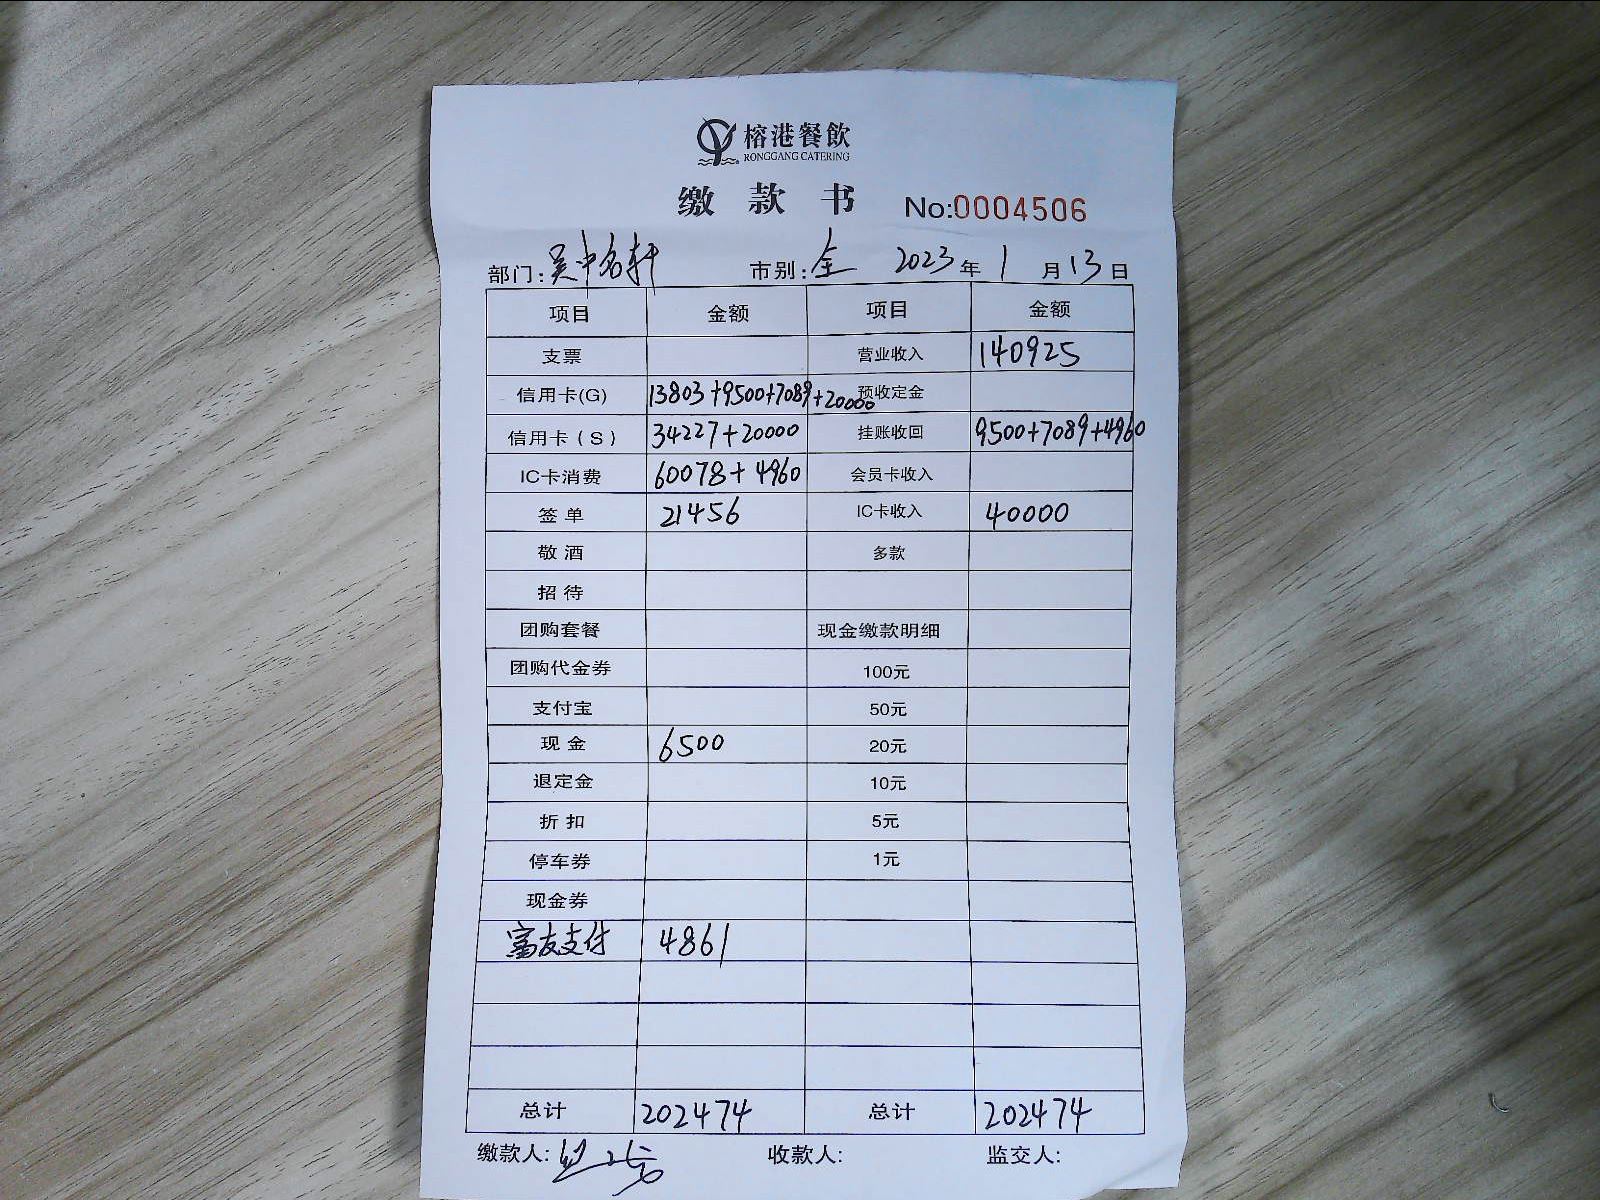 榕港餐飲
RONGGANG CATERING
缴款书 No:0004506
部门:吴中名轩 市别:全 2023年1月13日
项目 金额 项目 金额
支票 营业收入 140925
信用卡(G) 13803+9500+7089+20000 预收定金
信用卡(S) 34227+20000 挂账收回 9500+7089+4960
IC卡消费 60078+4960 会员卡收入
签单 21456 IC卡收入 40000
敬酒 多款
招待
团购套餐 现金缴款明细
团购代金券 100元
支付宝 50元
现金 6500 20元
退定金 10元
折扣 5元
停车券 1元
现金券
富友支付 4861
总计 202474 总计 202474
缴款人: 收款人: 监交人: